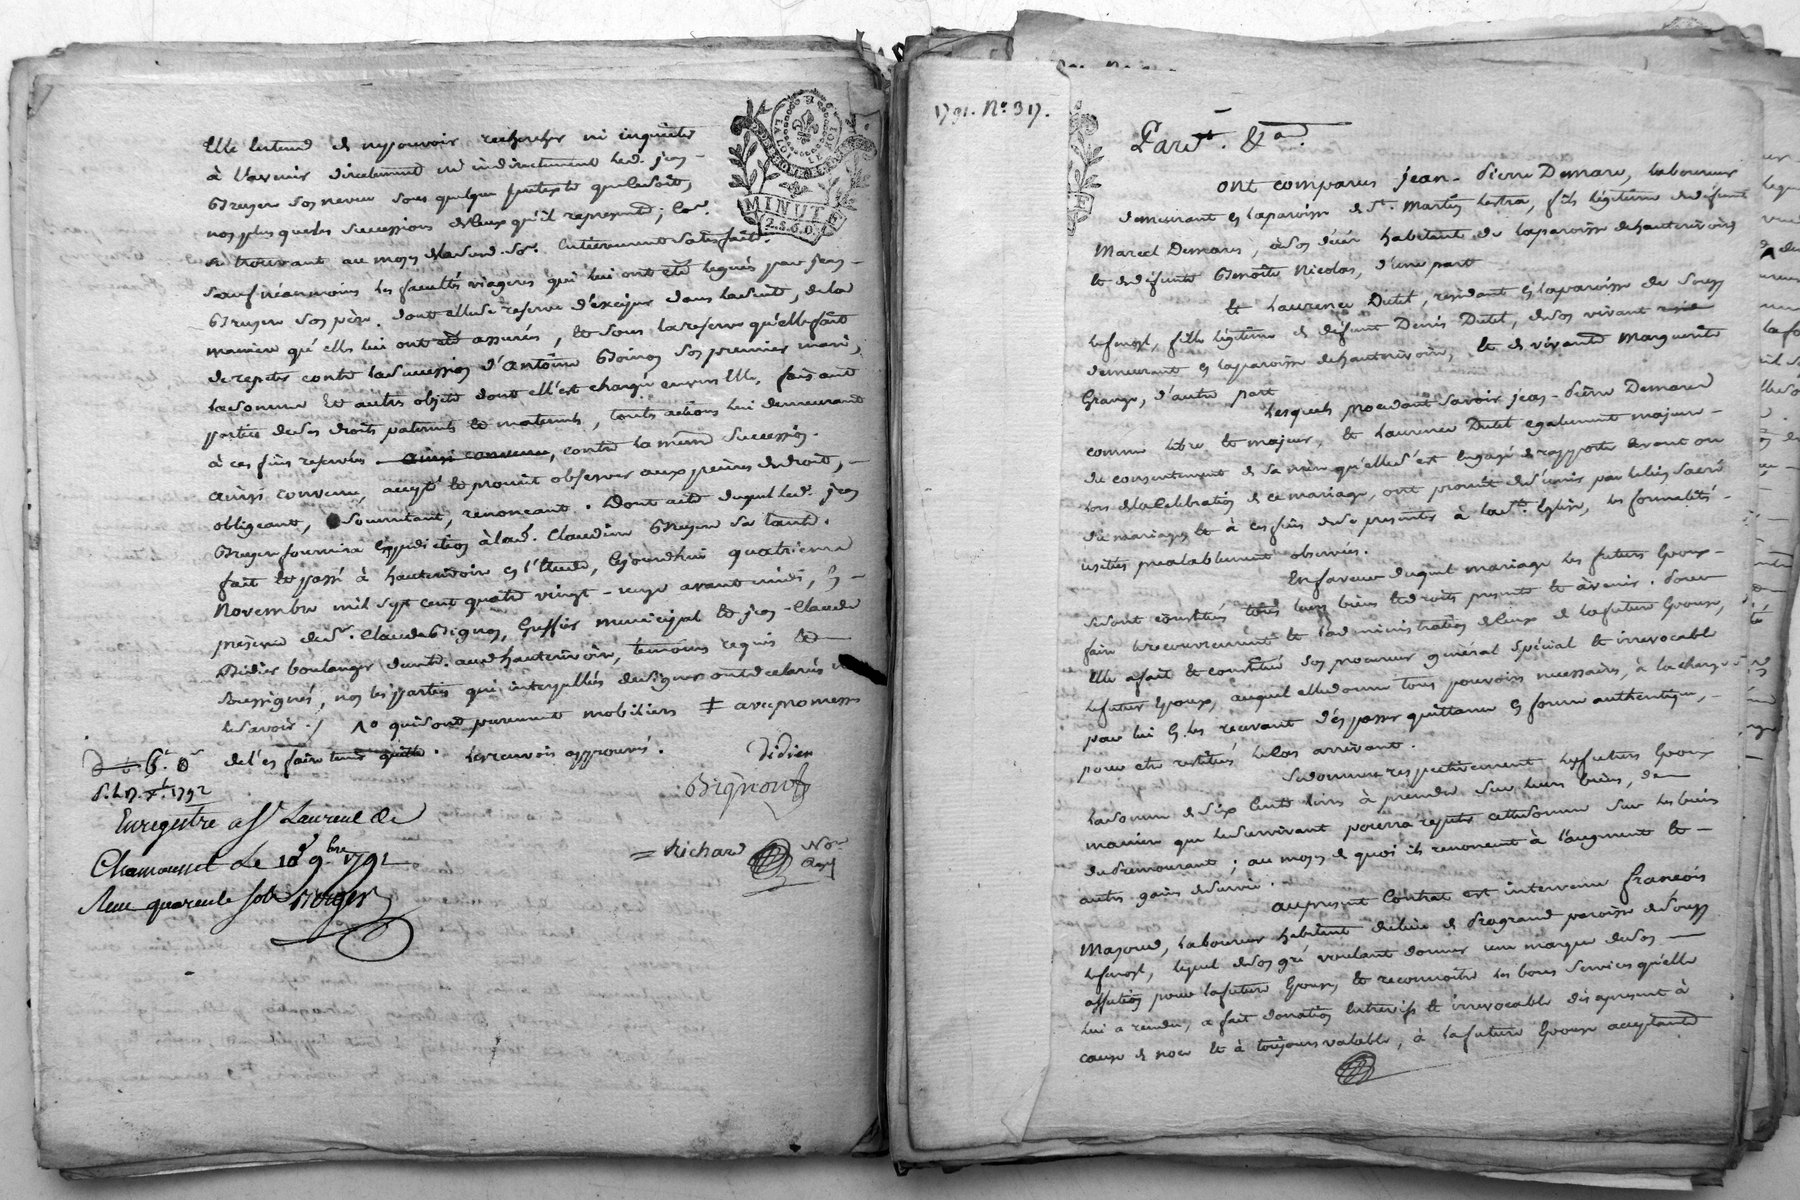 Elle entend de ny pouvoir rechercher ni inquieter
à l'avenir directement ni indirectement led. jean
Bruyere son neveu sous quelque pretexte que ce soit,
non plus que les successions de ceux qu'il represente; la de.
se trouvant au moyen de la somme entierement satisfaite.
sauf néanmoins les facultés viageres qui lui ont eté leguées par jean
son père. dont elle se reserve d'exiger dans la suite, de la
maniere qu'elle lui ont eté assurés, et sous la reserve qu'elle fait
de repeter contre la succession d'antoine son premier mari,
la somme et autres objets dont elle est chargé envers elle, faisant
partie de ses droits paternels et maternels, toutes actions lui demeurant
à ces fins reservées ainsi convenu, contre la même succession.
ainsi convenu, accepté et promit observer aux peines de droit,
obligeant, soumettant, renonçant. Dont acte duquel led. jean
fournira expedition à lad. Claudine sa tante.
fait et passé à hauterivoire en l'étude, cejourdhui quatrieme
Novembre mil sept cent quatre vingt-onze avant midi, en
présence de sr. Claude Bignon, Greffier municipal et jean-Claude
Didier boulanger demt. aud hauterivoire, temoins requis
soussignés, non les parties qui interpellées de signer ont declarés ne
le savoir ./. 1o qui sont purement mobiliers ‡ avec promesse
de l'en faire tenir quitte. les renvois approuvés.
Didier
Bignon
1792
Enregistré a St Laurent de
Chamousset Le 10 9bre 1791
Reçu quarente sols
Richard Nore
Roy
MINUTE
2.S.6.D.
LA LOI LE ROI
1791. No 317.
Pardt. &a.
ont comparus jean-Pierre Demare, laboureur
demeurant en la paroisse de St. Martin lestra, fils légitime de défunt
Marcel Demare, à son décès habitant de la paroisse de hauterivoire
et de défunte Benoîte Nicolas, d'une part
et Laurence Dutel, residant en la paroisse de Souzy
l'argentiere, fille légitime de défunt Denis Dutel, de son vivant
demeurant en la paroisse de hauterivoire, et de vivante Marguerite
Grange, d'autre part
Lesquels procedant savoir jean-Pierre Demare
comme libre et majeur, et Laurence Dutel egalement majeure
du consentement de sa mère qu'elle s'est engagé de rapporter avant ou
lors de la Celebration de ce mariage, ont promit de s'unir par le lien sacré
du mariage et à ces fins de se presenter à la ste. Eglise, les formalités
usitées prealablement observées.
En faveur duquel mariage les futurs Epoux
se sont constitués tous leurs biens et droits presents et à venir. pour
faire le recouvrement et l'administration de ceux de la future Epouse,
Elle a fait et constitué son procureur général spécial et irrevocable
le futur Epoux, auquel elle donne tous pouvoirs necessaires, à la charge
par lui en les recevant d'en passer quittance en forme authentique,
pour etre restitués le cas arrivant.
Se donnent respectivement les futurs Epoux
la somme de six cents livres à prendre sur leurs biens, de
maniere que le survivant pourra repeter cette somme sur les biens
du premourant; au moyen de quoi ils renoncent à l'augment et
autres gains de survie.
au present Contrat est intervenu françois
laboureur habitant du lieu de paroisse de Souzy
lequel de son gré voulant donner une marque de son
affection pour la future Epouse, et reconnoitre les bons services qu'elle
lui a rendu, a fait donation entrevifs et irrevocable dès apresent à
cause de noce et à toujours valable, à la future Epouse acceptante